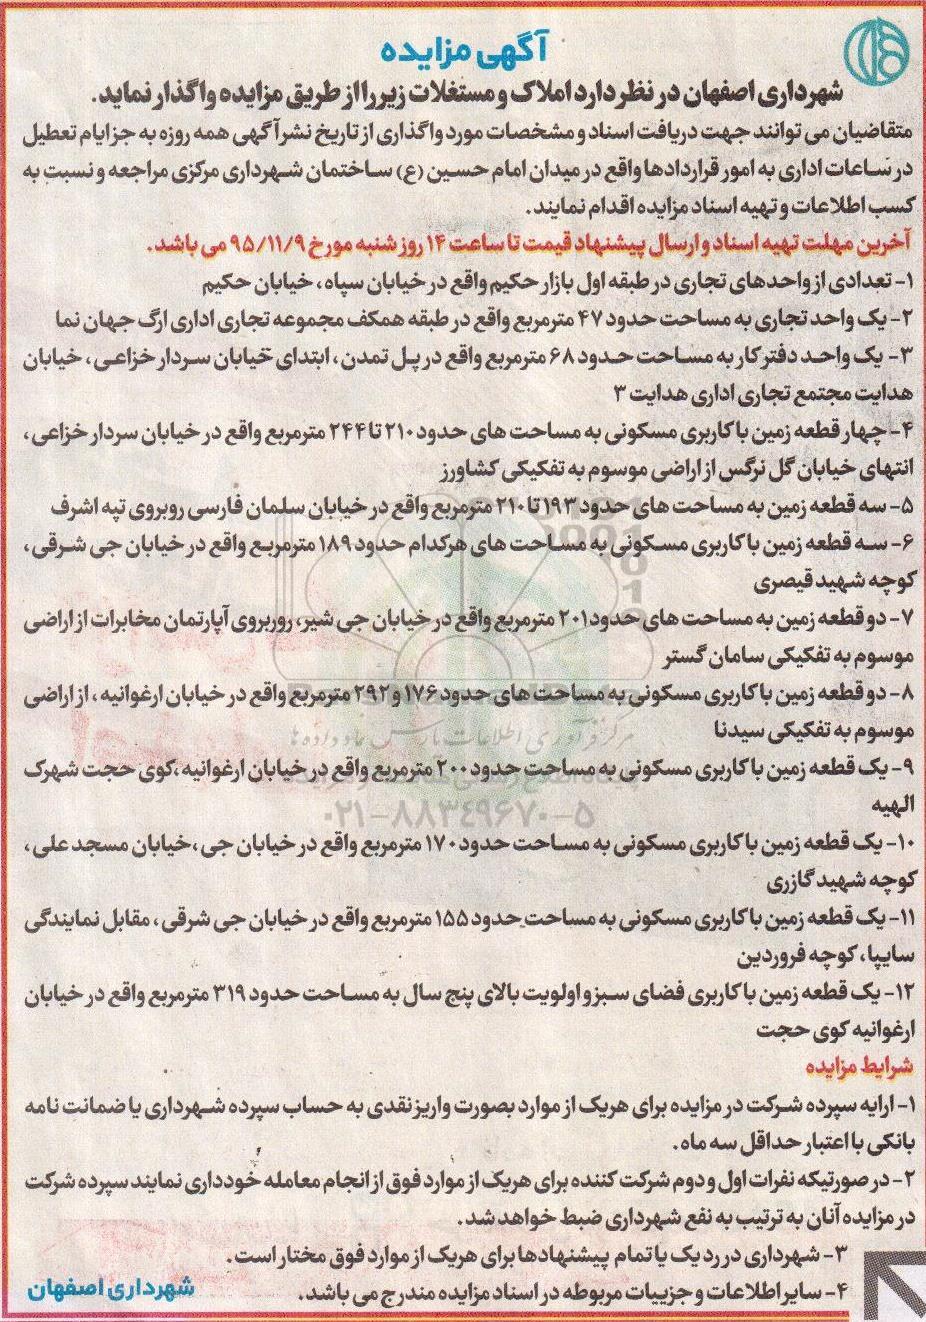 آگهی مزایده
شهرداری اصفهان در نظر دارد املاک و مستغلات زیر را از طریق مزایده واگذار نماید.
متقاضیان می توانند جهت دریافت اسناد و مشخصات مورد واگذاری از تاریخ نشر آگهی همه روزه به جز ایام تعطیل
در ساعات اداری به امور قراردادها واقع در میدان امام حسین (ع) ساختمان شهرداری مرکزی مراجعه و نسبت به
کسب اطلاعات و تهیه اسناد مزایده اقدام نمایند.
آخرین مهلت تهیه اسناد و ارسال پیشنهاد قیمت تا ساعت ۱۴ روز شنبه مورخ ۹۵/۱۱/۹ می باشد.
۱- تعدادی از واحدهای تجاری در طبقه اول بازار حکیم واقع در خیابان سپاه، خیابان حکیم
۲- یک واحد تجاری به مساحت حدود ۴۷ مترمربع واقع در طبقه همکف مجموعه تجاری اداری ارگ جهان نما
۳- یک واحد دفتر کار به مساحت حدود ۶۸ مترمربع واقع در پل تمدن، ابتدای خیابان سردار خزاعی، خیابان
هدایت مجتمع تجاری اداری هدایت ۳
۴- چهار قطعه زمین با کاربری مسکونی به مساحت های حدود ۲۱۰ تا ۲۴۴ مترمربع واقع در خیابان سردار خزاعی،
انتهای خیابان گل نرگس از اراضی موسوم به تفکیکی کشاورز
۵- سه قطعه زمین به مساحت های حدود ۱۹۳ تا ۲۱۰ مترمربع واقع در خیابان سلمان فارسی روبروی تپه اشرف
۶- سه قطعه زمین با کاربری مسکونی به مساحت های هرکدام حدود ۱۸۹ مترمربع واقع در خیابان جی شرقی،
کوچه شهید قیصری
۷- دو قطعه زمین به مساحت های حدود ۲۰۱ مترمربع واقع در خیابان جی شیر، روربروی آپارتمان مخابرات از اراضی
موسوم به تفکیکی سامان گستر
۸- دو قطعه زمین با کاربری مسکونی به مساحت های حدود ۱۷۶ و ۲۹۲ مترمربع واقع در خیابان ارغوانیه، از اراضی
موسوم به تفکیکی سیدنا
۹- یک قطعه زمین با کاربری مسکونی به مساحت حدود ۲۰۰ مترمربع واقع در خیابان ارغوانیه، کوی حجت شهرک
الهیه
۰۲۱-۸۸۳۴۹۶۷۰-۵
۱۰- یک قطعه زمین با کاربری مسکونی به مساحت حدود ۱۷۰ مترمربع واقع در خیابان جی، خیابان مسجد علی،
کوچه شهید گازری
۱۱- یک قطعه زمین با کاربری مسکونی به مساحت حدود ۱۵۵ مترمربع واقع در خیابان جی شرقی، مقابل نمایندگی
سایپا، کوچه فروردین
۱۲- یک قطعه زمین با کاربری فضای سبز و اولویت بالای پنج سال به مساحت حدود ۳۱۹ مترمربع واقع در خیابان
ارغوانیه کوی حجت
شرایط مزایده
۱- ارایه سپرده شرکت در مزایده برای هریک از موارد بصورت واریز نقدی به حساب سپرده شهرداری یا ضمانت نامه
بانکی با اعتبار حداقل سه ماه.
۲- در صورتیکه نفرات اول و دوم شرکت کننده برای هریک از موارد فوق از انجام معامله خودداری نمایند سپرده شرکت
در مزایده آنان به ترتیب به نفع شهرداری ضبط خواهد شد.
۳- شهرداری در رد یک یا تمام پیشنهادها برای هریک از موارد فوق مختار است.
۴- سایر اطلاعات و جزییات مربوطه در اسناد مزایده مندرج می باشد.
شهرداری اصفهان